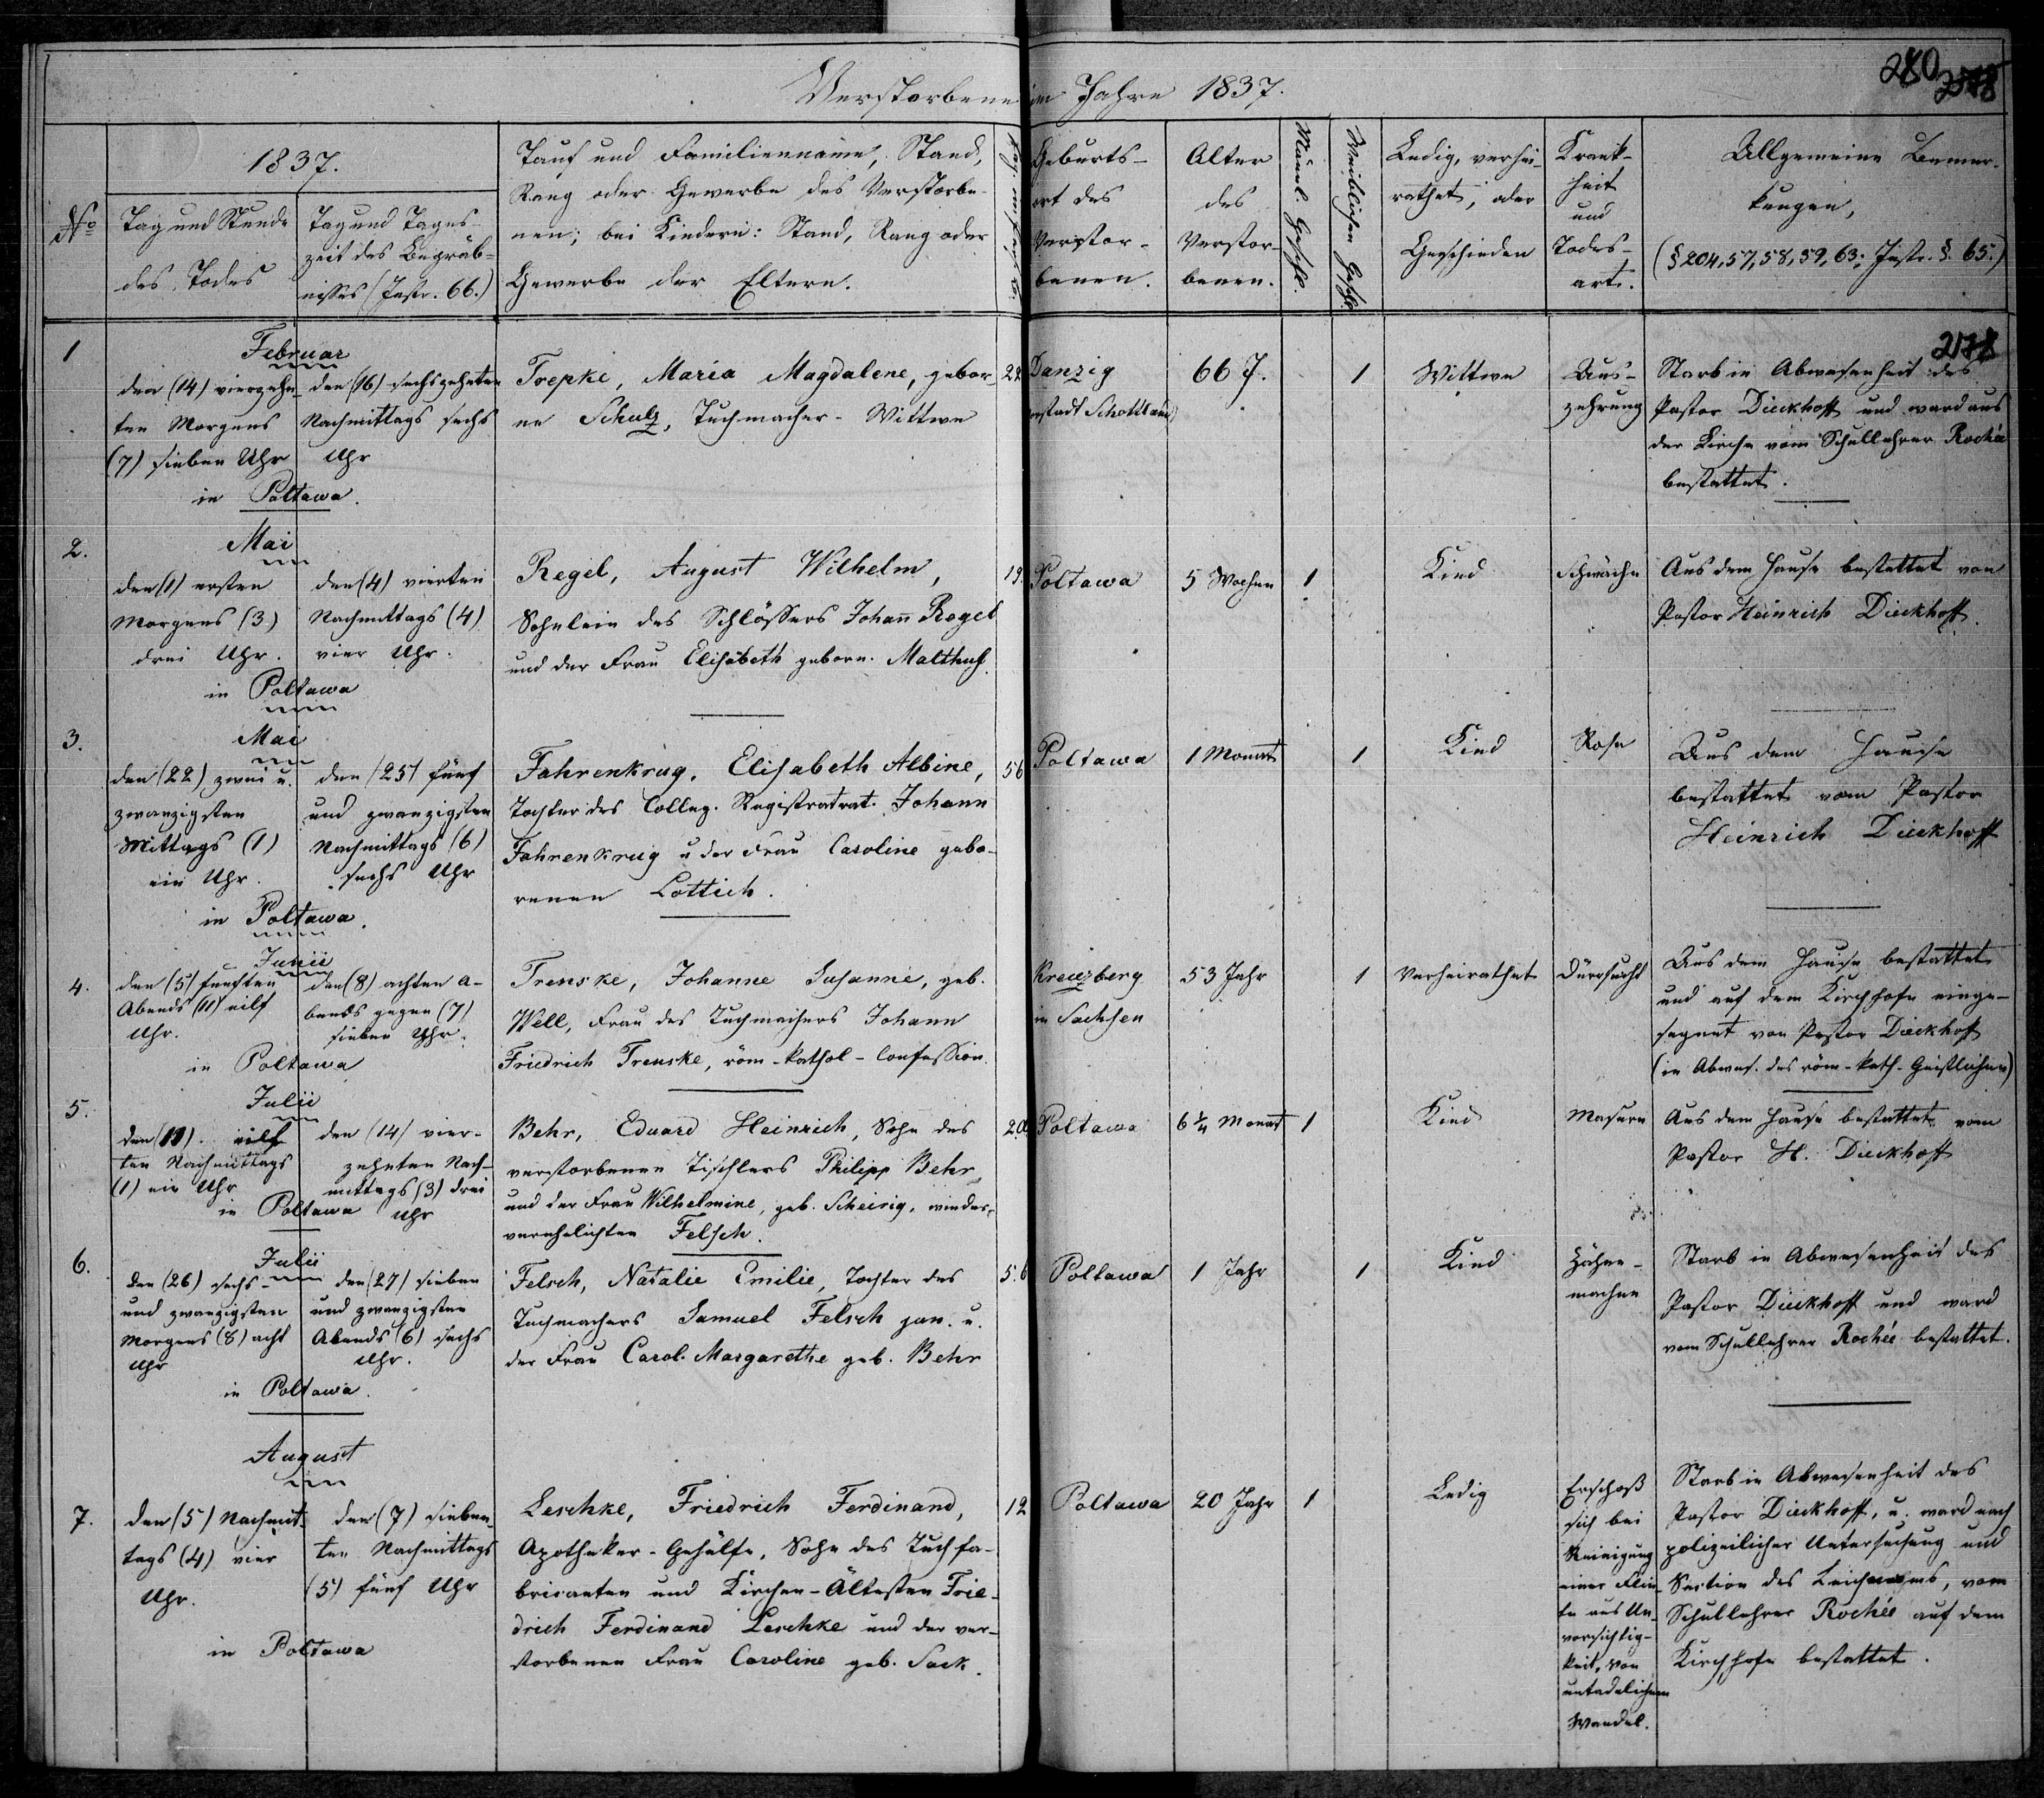 Verstorbene im Jahre 1837.
280
1837.
No
Tag und Stunde
des Todes
Tag und Tages-
zeit des Begräb-
nisses (Instr. 66.)
Tauf und Familienname, Stand,
Rang oder Gewerbe des Verstorbe-
nen; bei Kindern: Stand, Rang oder
Gewerbe der Eltern.
Geburts-
ort des
Verstor-
benen.
Alter
des
Verstor-
benen.
Männl. Geschl.
Weiblichen Geschl.
Ledig, verhei-
rathet, oder
Geschieden
Krank-
heit
und
Todes-
art.
Allgemeine Bemer-
kungen,
(§ 204, 57, 58, 59, 63; Instr. §. 65.)
1
Februar
den (14) vierzehn-
ten Morgens
(7) sieben Uhr
den (16) sechszehnten
Nachmittags sechs
Uhr
in Poltawa.
Trepke, Maria Magdalene, gebor-
ne Schulz, Tuchmacher-Wittwe
22
Danzig
66 J.
1
Wittwe
Aus-
zehrung
2178
Starb in Abwesenheit des
Pastor Dieckhoff und ward aus
der Kirche vom Schullehrer Rochée
bestattet.
2.
Mai
den (1) ersten
Morgens (3)
drei Uhr.
den (4) vierten
Nachmittags (4)
vier Uhr.
in Poltawa
Regel, August Wilhelm,
Sohnlein des Schlössers Johañ Regel
und der Frau Elisabeth geborn. Malthus.
19.
Poltawa
5 Wochen
1
Kind
Schwäche
Aus dem Hause bestattet von
Pastor Heinrich Dieckhoff.
3.
Mai
den (22) zwei u.
zwanzigsten
Mittags (1)
ein Uhr.
den (25) fünf
und zwanzigsten
Nachmittags (6)
sechs Uhr
in Poltawa.
Fahrenkrug, Elisabeth Albine,
Tochter des Colleg. Registratrat. Johann
Fahrenkrug u der Frau Caroline gebo-
renen Lottich.
56
Poltawa
1 Monat
1
Kind
Rose
Aus dem Hause
bestattet vom Pastor
Heinrich Dieckhoff
4.
Junii
den (5) fünften
Abends (11) eilf
Uhr.
den (8) achten A-
bends gegen (7)
sieben Uhr.
in Poltawa
Trenske, Johanne Susanne, geb.
Well, Frau des Tuchmachers Johann
Friedrich Trenske, röm-kathol-Confession.
Kreuzberg
in Sachsen
53 Jahr
1
Verheirathet
Dürrsucht
Aus dem Hause bestattet
und auf dem Kirchhofe einge-
segnet von Pastor Dieckhoff
(in Abwes. des röm-kath-Geistlichen)
5.
Julii
den (11). eilf
ten Nachmittags
(1) ein Uhr
den (14) vier-
zehnten Nach-
mittags (3) drei
Uhr
in Poltawa
Behr, Eduard Heinrich, Sohn des
verstorbenen Tischlers Philipp Behr
und der Frau Wilhelmine, geb. Scheirig, wieder-
verehelichten Felsch.
20
Poltawa
6 1/4 Monat
1
Kind
Masern
Aus dem Hause bestattet vom
Pastor H. Dieckhoff
6.
Julii
den (26) sechs-
und zwanzigsten
Morgens (8) acht
Uhr
den (27) sieben
und zwanzigsten
Abends (6) sechs
Uhr.
in Poltawa.
Felsch, Natalie Emilie, Tochter des
Tuchmachers Samuel Felsch jun. u.
der Frau Carol. Margarethe geb. Behr
5.6
Poltawa
1 Jahr
1
Kind
Zähne-
machen
Starb in Abwesenheit des
Pastor Dieckhoff und ward
vom Schullehrer Rochée bestattet.
7.
August
den (5) Nachmit-
tags (4) vier
Uhr.
den (7) sieben-
ten Nachmittags
(5) fünf Uhr
in Poltawa
Leschke, Friedrich Ferdinand,
Apotheker-Gehülfe, Sohn des Tuchfa-
bricanten und Kirchen-Ältesten Frie-
drich Ferdinand Leschke und der ver-
storbenen Frau Caroline geb. Sack.
12
Poltawa
20 Jahr
1
Ledig
Erschoß
sich bei
Reinigung
einer Flin-
te aus Un-
vorsichtig-
keit, von
untadelichem
Wandel.
Starb in Abwesenheit des
Pastor Dieckhoff, u. ward nach
polizeilicher Untersuchung und
Section des Leichnams, vom
Schullehrer Rochée auf dem
Kirchhofe bestattet.